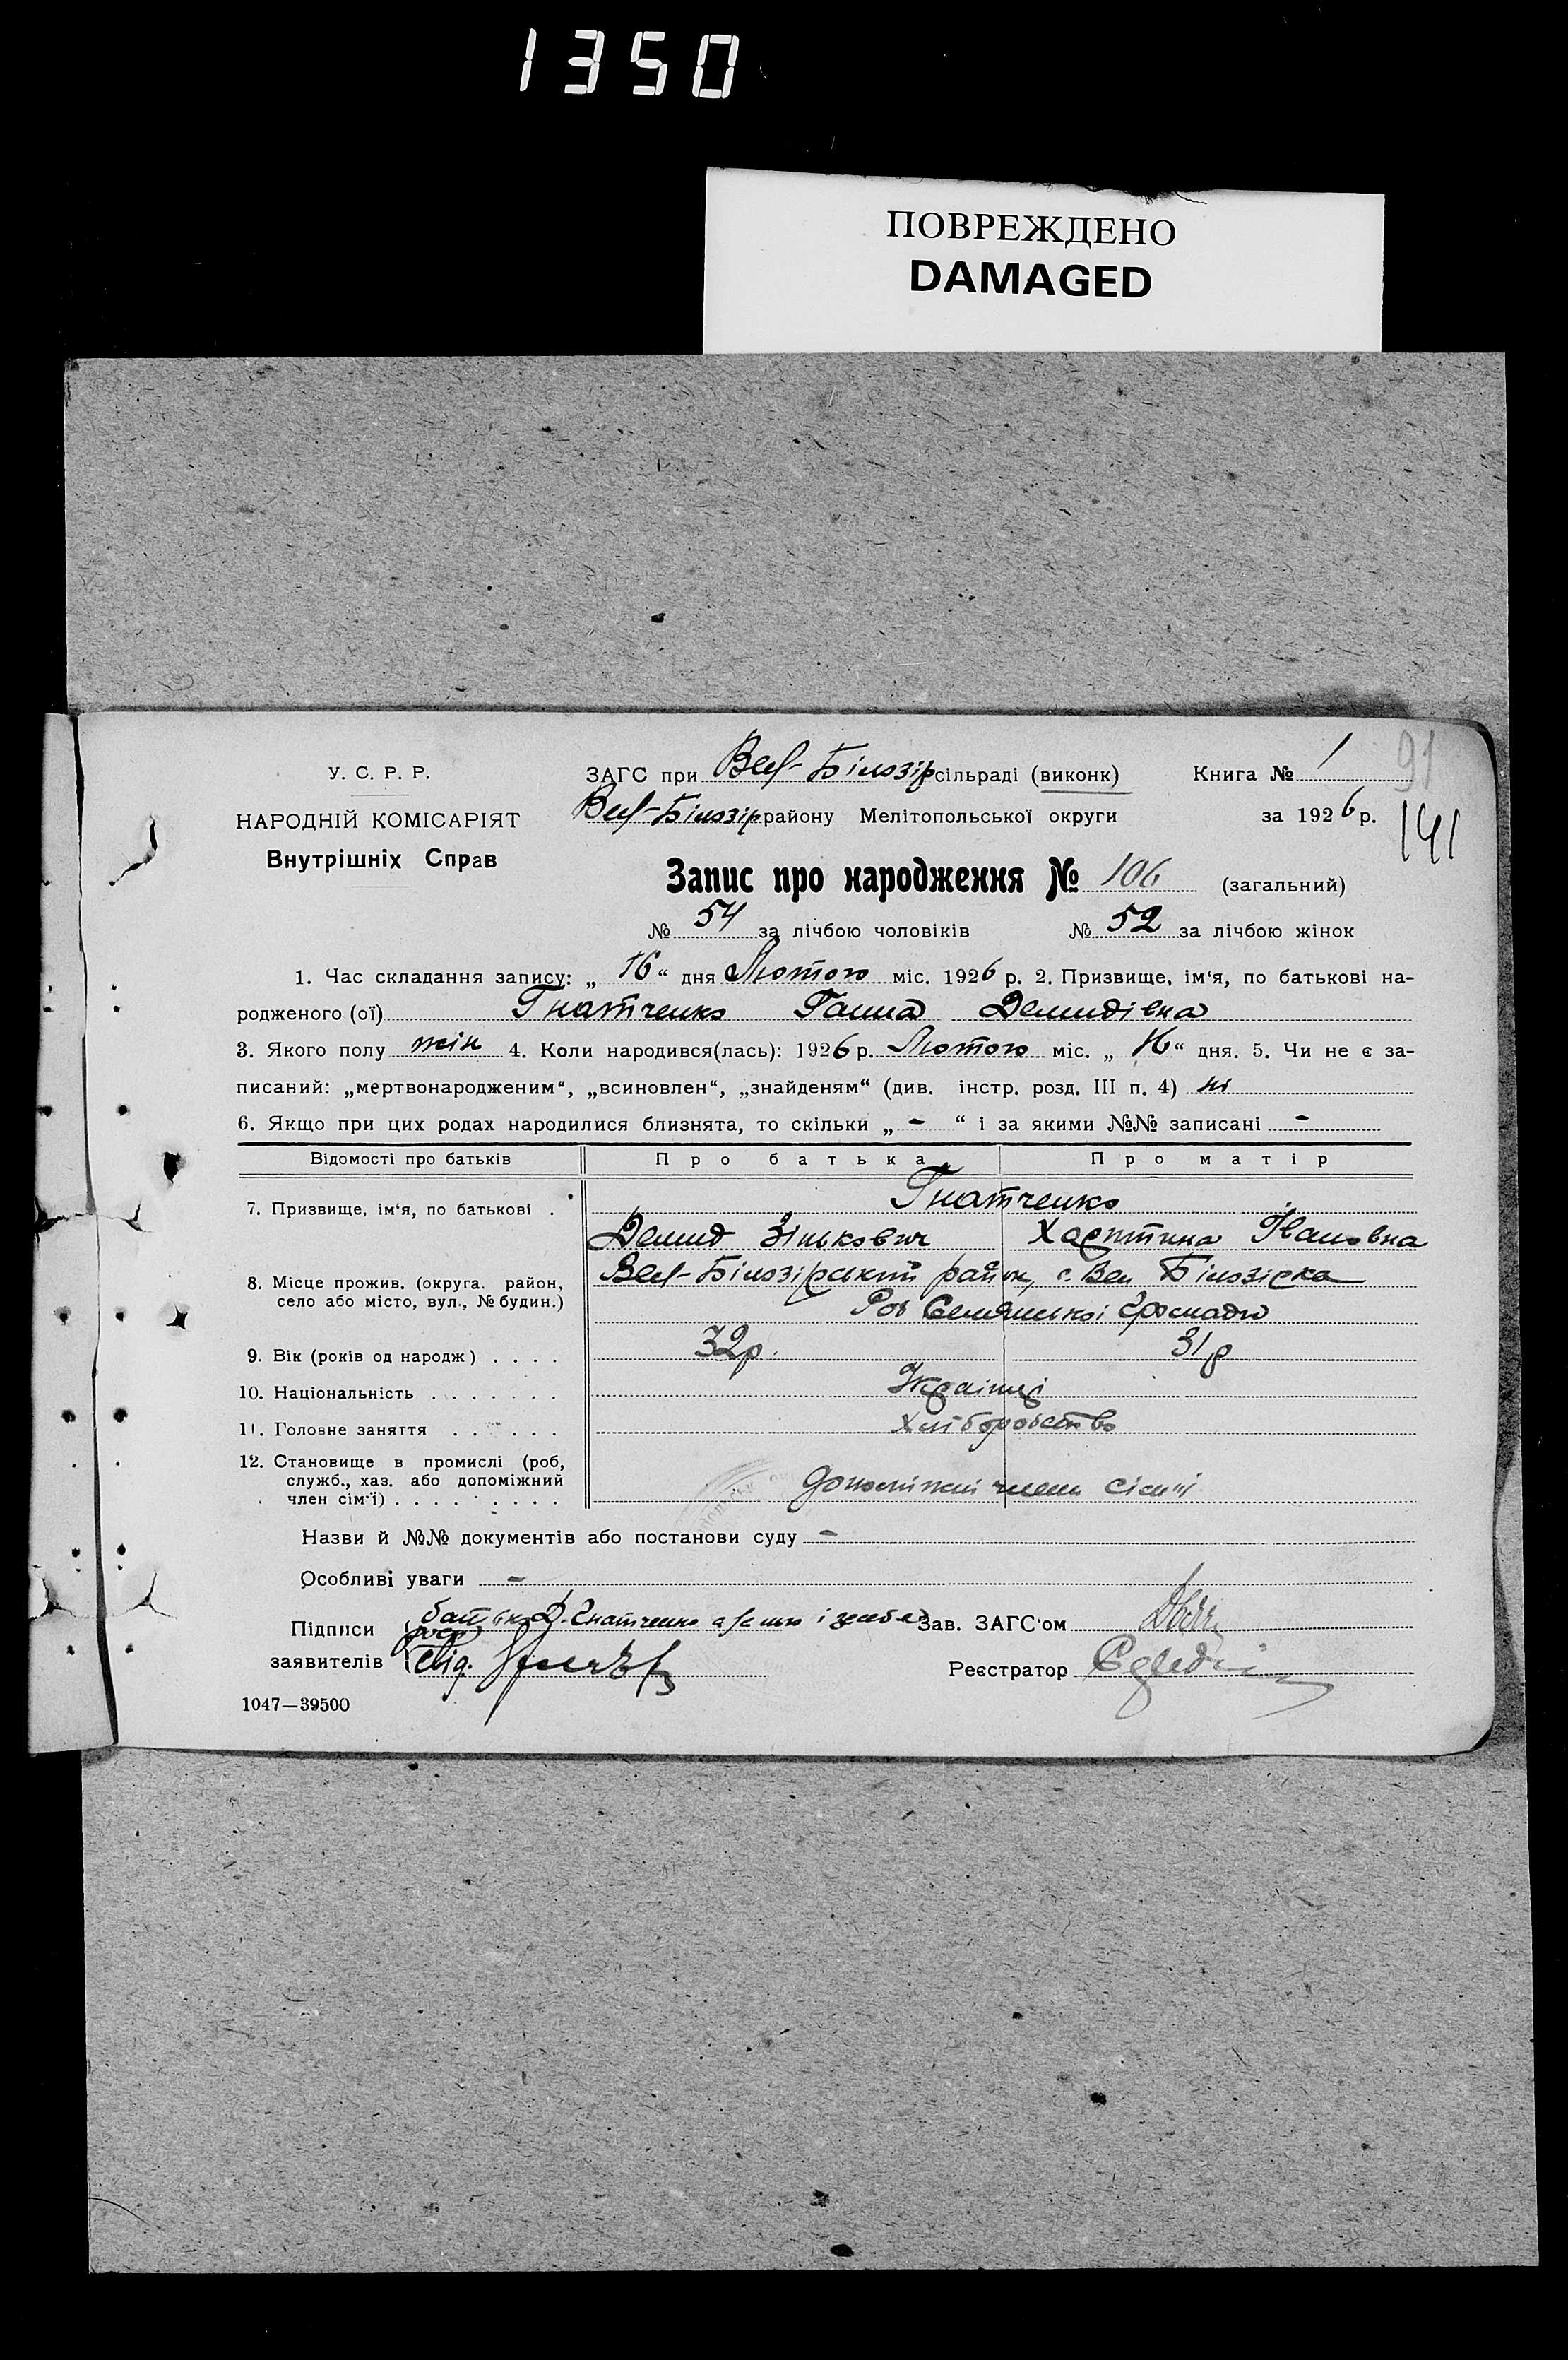 1350
ПОВРЕЖДЕНО
DAMAGED
У. С. Р. Р.
НАРОДНІЙ КОМІСАРІЯТ
Внутрішніх Справ
ЗАГС при Вел-Білозір сільраді (виконк) Книга № 1
91
Вел-Білозір району Мелітопольської округи за 1926 р.
141
Запис про народження № 106 (загальний)
№ 54 за лічбою чоловіків № 52 за лічбою жінок
1. Час складання запису: „16“ дня Лютого міс. 1926 р. 2. Призвище, ім‘я, по батькові на-
родженого (ої) Гнатченко Ганна Демидівна
3. Якого полу жін 4. Коли народився(лась): 1926 р. Лютого міс. „ “ дня. 5. Чи не є за-
писаний: „мертвонародженим“, „всиновлен“, „знайденям“ (див. інстр. розд. III п. 4) ні
6. Якщо при цих родах народилися близнята, то скільки „ - “ і за якими №№ записані -
Відомості про батьків Про батька Про матір
7. Призвище, ім‘я, по батькові . Гнатченко
Демид Зінькович Харитина Івановна
8. Місце прожив. (округа. район, село або місто, вул., № будин.) Вел-Білозірський район, с. Вел Білозірка
Селянської громади
9. Вік (років од народж) . . . . 32р. 31р
10. Національність . . . . . . . Українці
11. Головне заняття . . . . . . Хліборобство
12. Становище в промислі (роб, служб., хаз. або допоміжний член сім‘ї) . . . . . . . . . допоміжні члени сім'ї
Назви й №№ документів або постанови суду -
Особливі уваги -
Підписи батько Д. Гнатченко Зав. ЗАГС‘ом
заявителів Свід. Реєстратор
1047—39500